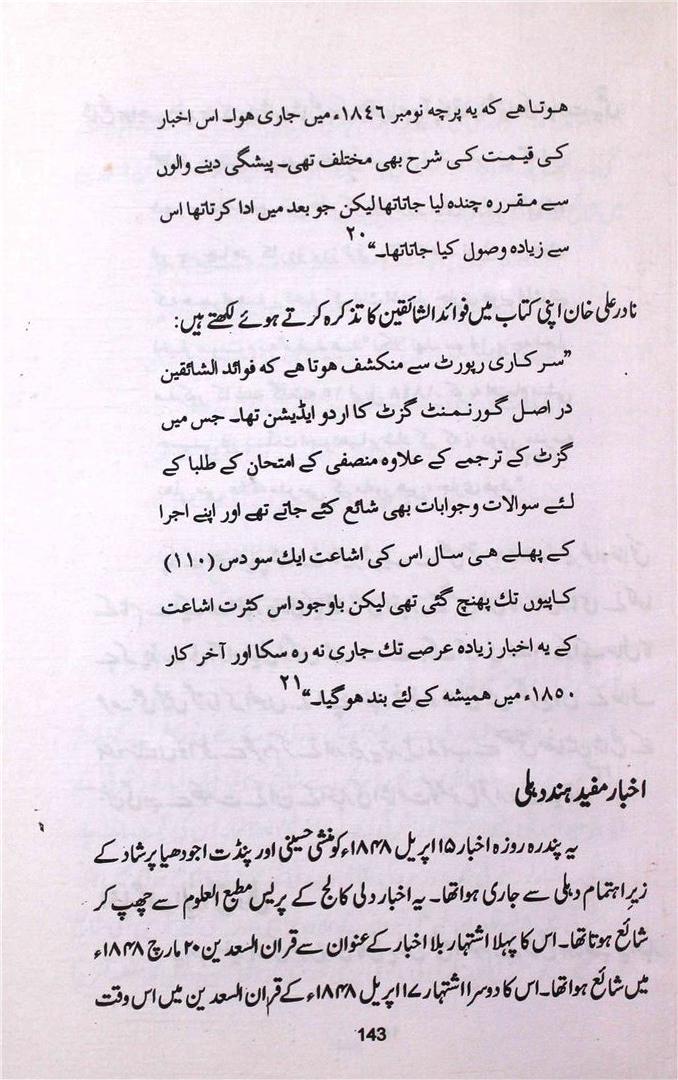 ہوتا ہے کہ یہ پرچہ نومبر ۱۸٤٦ء میں جاری ہوا۔ اس اخبار
کی قیمت کی شرح بھی مختلف تھی۔ پیشگی دینے والوں
سے مقررہ چندہ لیا جاتاتھا لیکن جو بعد میں ادا کرتاتھا اس
سے زیادہ وصول کیا جاتاتھا۔“۲۰
نادر علی خان اپنی کتاب میں فوائد الشائقین کا تذکرہ کرتے ہوئے لکھتے ہیں:
”سرکاری رپورٹ سے منکشف ہوتا ہے کہ فوائد الشائقین
در اصل گورنمنٹ گزٹ کا اردو ایڈیشن تھا۔ جس میں
گزٹ کے ترجمے کے علاوہ منصفی کے امتحان کے طلبا کے
لئے سوالات وجوابات بھی شائع کئے جاتے تھے اور اپنے اجرا
کے پھلے ھی سال اس کی اشاعت ایك سو دس (۱۱۰)
کاپیوں تك پھنچ گئی تھی لیکن باوجود اس کثرت اشاعت
کے یہ اخبار زیادہ عرصے تك جاری نہ رہ سکا اور آخر کار
۱۸۵۰ء میں ھمیشہ کے لئے بند ھو گیا۔“۲۱
اخبار مفید ہند دہلی
یہ پندرہ روزہ اخبار ۱۵ اپریل ۱۸۴۸ء کو منشی حسینی اور پنڈت اجودھیا پرشاد کے
زیر اہتمام دہلی سے جاری ہوا تھا۔ یہ اخبار دلی کالج کے پریس مطبع العلوم سے چھپ کر
شائع ہوتا تھا۔ اس کا پہلا اشتہار بلا اخبار کے عنوان سے قران السعدین ۲۰ مارچ ۱۸۴۸ء
میں شائع ہوا تھا۔ اس کا دوسرا اشتہار ۱۷ اپریل ۱۸۴۸ء کے قران السعدین میں اس وقت
143